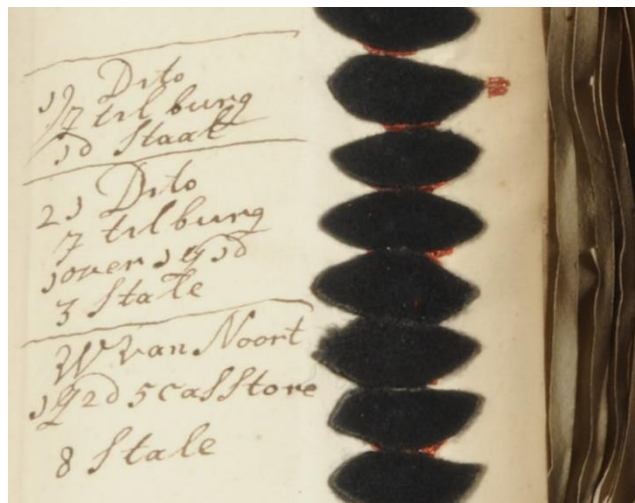 19 Dito
7 tilburg
1d Staal
21 Dito
7 tilburg
1over 1 g 1d
3 Stale
W Van Noort
1 g 2d 5 Casstore
8 Stale